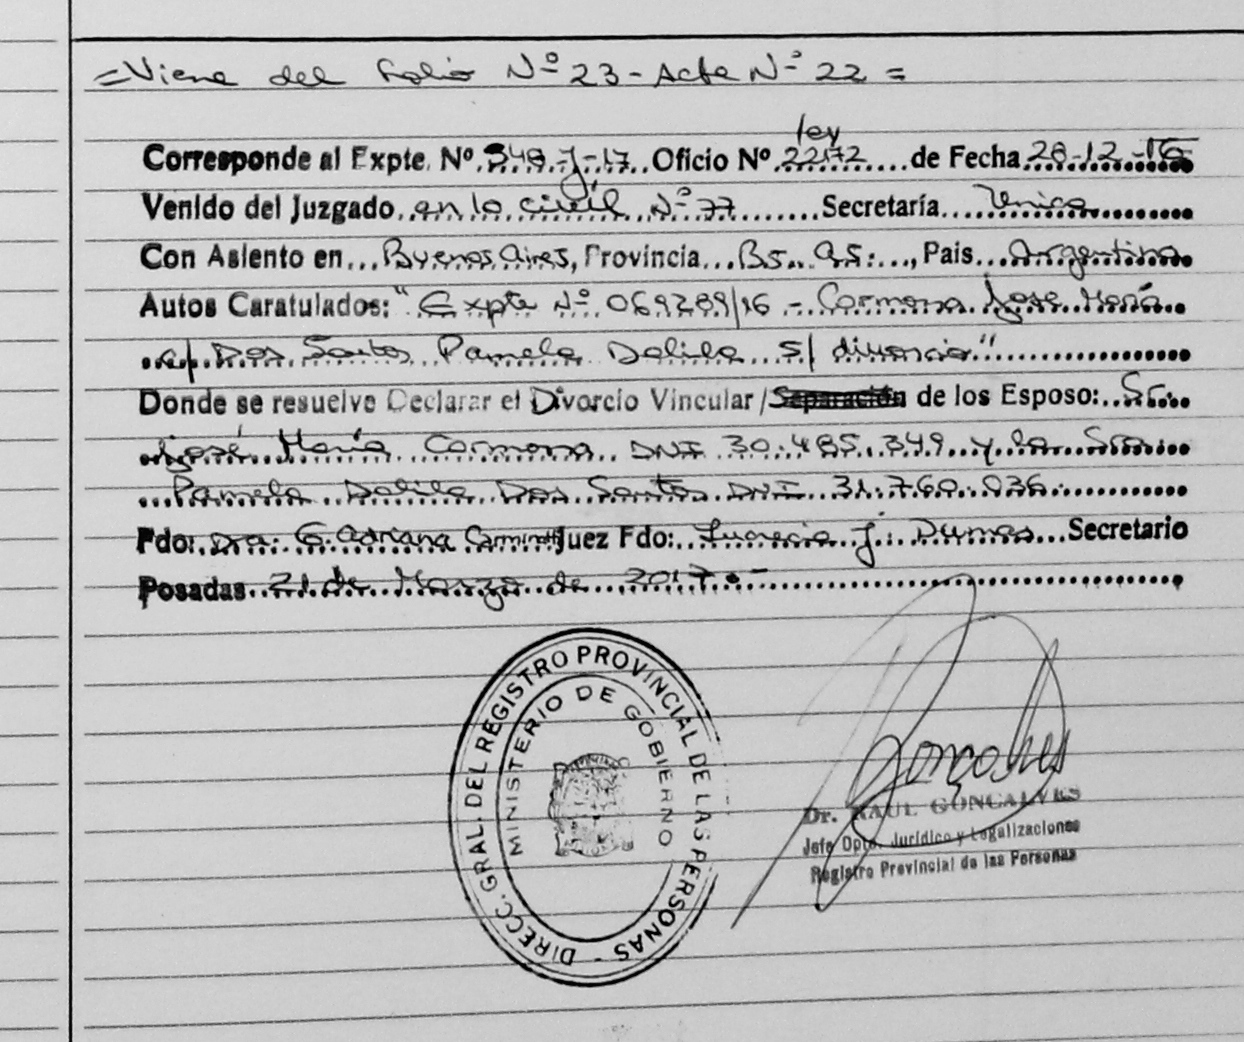 =Viene del Folio Nº 23 - Acta Nº 22 =
ley
Corresponde al Expte. Nº 348-J-17 Oficio Nº 22172 de Fecha 28-12-16
Venido del Juzgado en lo civil Nº 77 Secretaría Unica
Con Asiento en Buenos Aires, Provincia Bs. As., Pais Argentina
Autos Caratulados: "Expte Nº 069289/16 - Carmona José María
c/ Dos Santos Pamela Dalila s/ divorcio"
Donde se resuelve Declarar el Divorcio Vincular / Separación de los Esposo: Sr.
José María Carmona DNI 30.485.349 y la Sra.
Pamela Dalila Dos Santos DNI 31.760.036.
Fdo: Dra. G. Adriana Juez Fdo: Lucrecia J. Dumas Secretario
Posadas 21 de Marzo de 2017.-
DIRECC. GRAL. DEL REGISTRO PROVINCIAL DE LAS PERSONAS -
MINISTERIO DE GOBIERNO
Gonçalves
Dr. RAUL GONCALVES
Jefe Dpto. Jurídico y Legalizaciones
Registro Provincial de las Personas